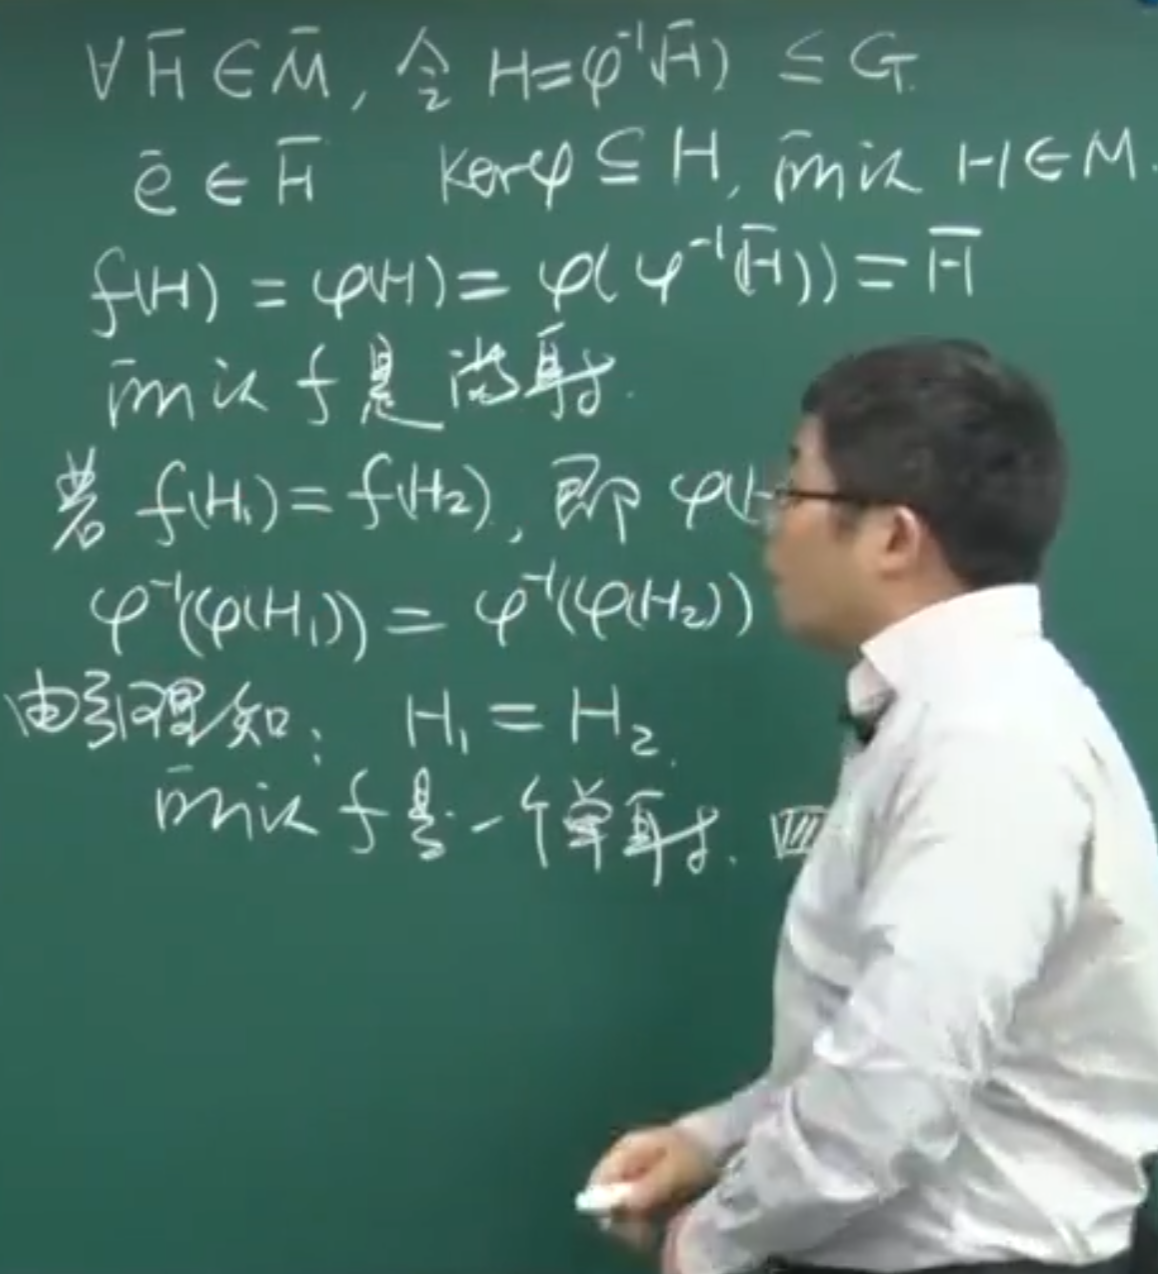 ∀H̄∈M̄, 令 H=φ⁻¹(H̄) ≤ G.
ē∈H̄ Kerφ⊆H, 而以 H∈M.
f(H)=φ(H)=φ(φ⁻¹(H̄))=H̄
f是满射.
若 f(H₁)=f(H₂), 即 φ(H
φ⁻¹(φ(H₁))=φ⁻¹(φ(H₂))
由引理知: H₁=H₂.
f是一个单射.